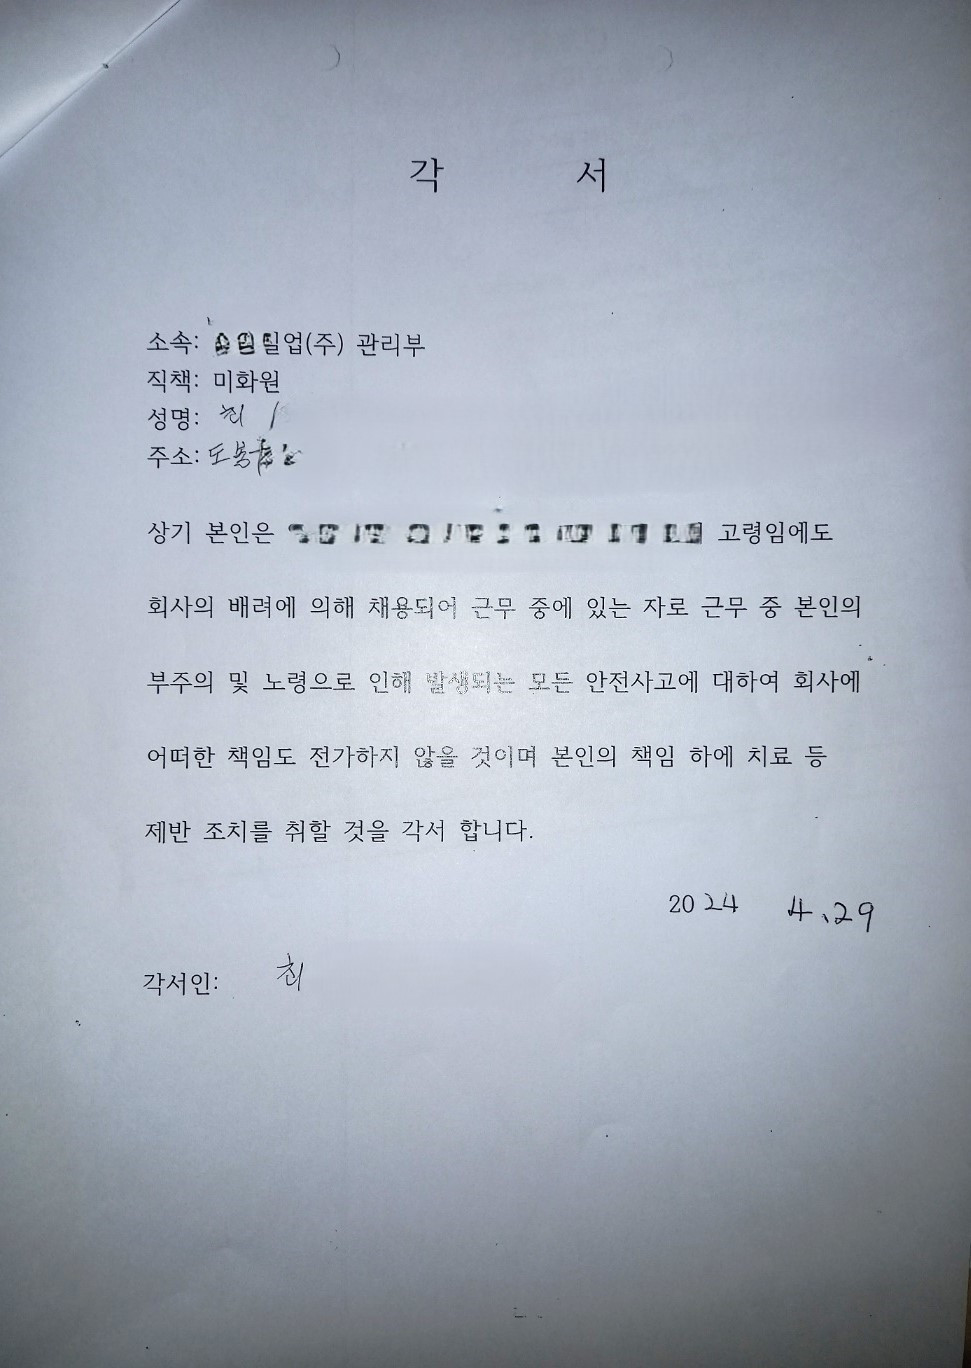 각 서
소속: 업(주) 관리부
직책: 미화원
성명: 최
주소: 도봉
상기 본인은 고령임에도
회사의 배려에 의해 채용되어 근무 중에 있는 자로 근무 중 본인의
부주의 및 노령으로 인해 발생되는 모든 안전사고에 대하여 회사에
어떠한 책임도 전가하지 않을 것이며 본인의 책임 하에 치료 등
제반 조치를 취할 것을 각서 합니다.
2024 4.29
각서인: 최